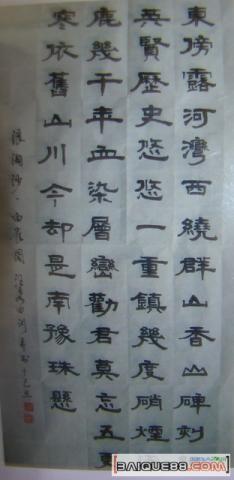 東傍露河灣西繞群山香山碑刻
英賢歷史悠悠一重鎮幾度硝煙
鹿幾千年血染層巒勸君莫忘五更
寒依舊山川今却是南豫珠懸
浪淘沙
BAIQUE88.COM